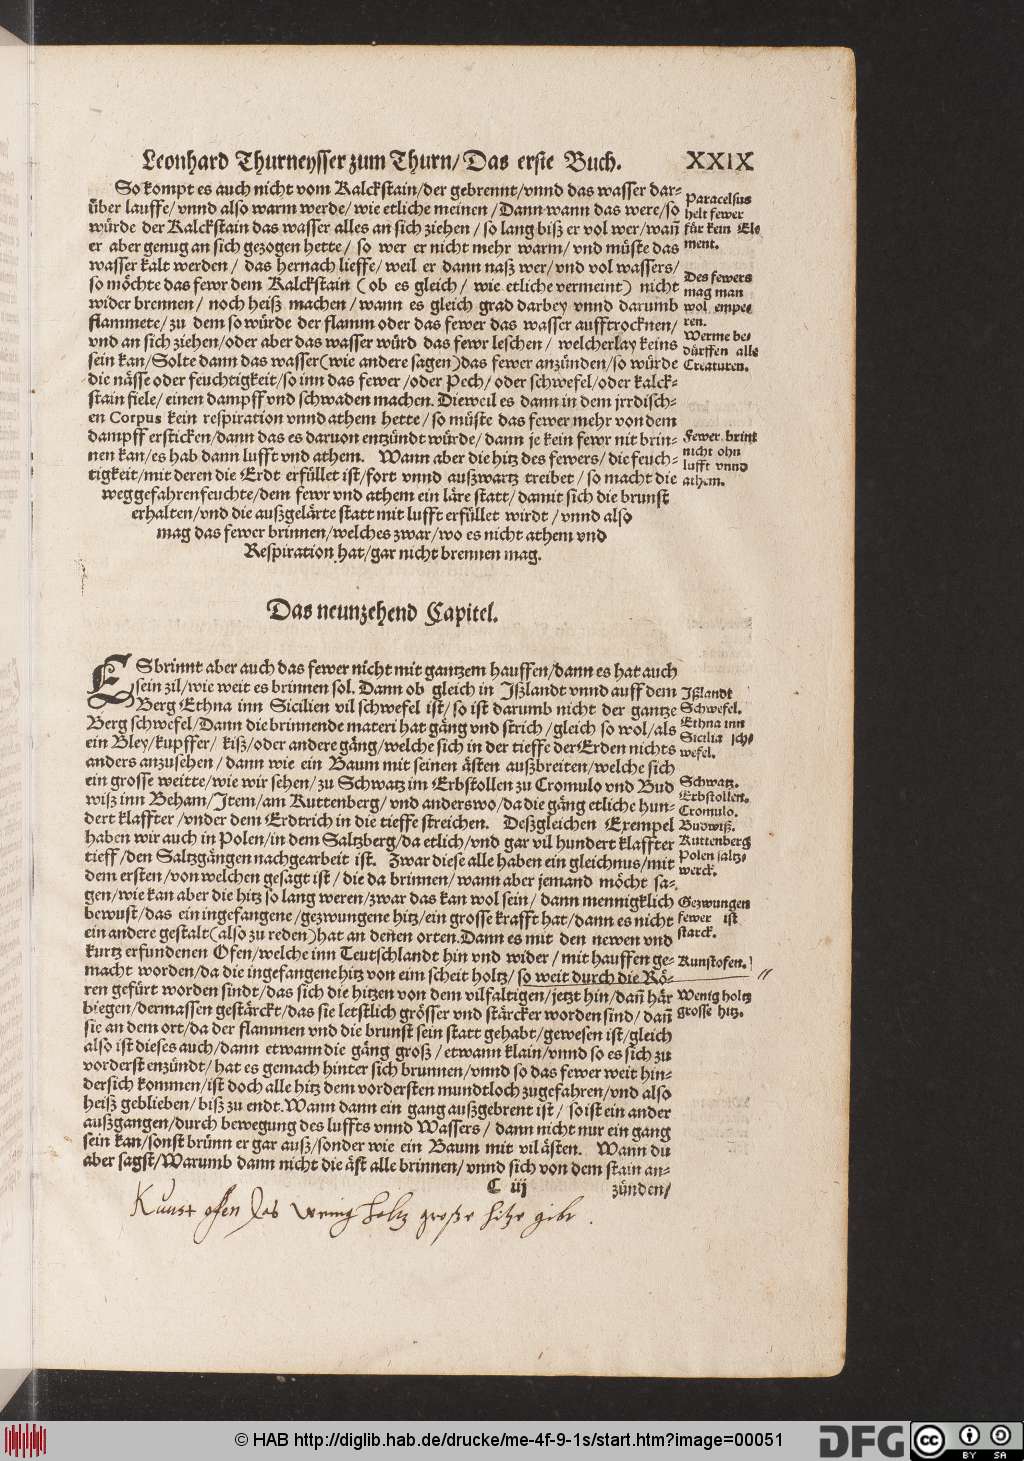 Leonhard Thurneysser zum Thurn/Das erste Buch. XXIX
So kompt es auch nicht vom Kalckstain/der gebrennt/vnnd das wasser dar-
über lauffe/vnnd also warm werde/wie etliche meinen/Dann wann das were/so
würde der Kalckstain das wasser alles an sich ziehen/so lang biß er vol wer/wañ
er aber genug an sich gezogen hette/ so wer er nicht mehr warm/vnd müste das
wasser kalt werden/ das hernach lieffe/weil er dann naß wer/vnd vol wassers/
so möchte das fewr dem Kalckstain (ob es gleich/ wie etliche vermeint) nicht
wider brennen/ noch heiß machen/wann es gleich grad darbey vnnd darumb
flammete/zu dem so würde der flamm oder das fewer das wasser aufftrocknen/
vnd an sich ziehen/oder aber das wasser würd das fewr leschen/ welcherlay keins
sein kan/Solte dann das wasser(wie andere sagen)das fewer anzünden/so würde
die nässe oder feuchtigkeit/so inn das fewer/oder Pech/ oder schwefel/oder kalck-
stain fiele/einen dampff vnd schwaden machen. Dieweil es dann in dem jrrdisch-
en Corpus kein respiration vnnd athem hette/so müste das fewer mehr von dem
dampff ersticken/dann das es daruon entzündt würde/dann je kein fewr nit brin-
nen kan/es hab dann lufft vnd athem. Wann aber die hitz des fewers/die feuch-
tigkeit/mit deren die Erdt erfüllet ist/fort vnnd außwartz treibet/so macht die
weggefahrenfeuchte/dem fewr vnd athem ein läre statt/damit sich die brunst
erhalten/vnd die außgelärte statt mit lufft erfüllet wirdt/vnnd also
mag das fewer brinnen/welches zwar/wo es nicht athem vnd
Respiration hat/gar nicht brennen mag.
Paracelsus
helt fewer
für kein Ele
ment.
Des fewers
mag man
wol empee
ren.
Werme be-
dürffen alle
Creaturen.
Fewer brint
nicht ohn
lufft vnnd
athem.
Das neunzehend Capitel.
ES brinnt aber auch das fewer nicht mit gantzem hauffen/dann es hat auch
sein zil/wie weit es brinnen sol. Dann ob gleich in Ißlandt vnnd auff dem
Berg Ethna inn Sicilien vil schwefel ist/so ist darumb nicht der gantze
Berg schwefel/Dann die brinnende materi hat gäng vnd strich/gleich so wol/als
ein Bley/kupffer/ kiß/oder andere gäng/welche sich in der tieffe der Erden nichts
anders anzusehen/dann wie ein Baum mit seinen ästen außbreiten/welche sich
ein grosse weitte/wie wir sehen/zu Schwatz im Erbstollen zu Cromulo vnd Bud
wiß inn Beham/Item/am Kuttenberg/vnd anderswo/da die gäng etliche hun-
dert klaffter/vnder dem Erdtrich in die tieffe streichen. Deßgleichen Exempel
haben wir auch in Polen/in dem Saltzberg/da etlich/vnd gar vil hundert klaffter
tieff/den Saltzgängen nachgearbeit ist. Zwar diese alle haben ein gleichnus/mit
dem ersten/von welchen gesagt ist/die da brinnen/wann aber jemand möcht sa-
gen/wie kan aber die hitz so lang weren/zwar das kan wol sein/ dann mennigklich
bewust/das ein ingefangene/gezwungene hitz/ein grosse krafft hat/dann es nicht
ein andere gestalt(also zu reden)hat an denen orten. Dann es mit den newen vnd
kurtz erfundenen Ofen/welche inn Teutschlandt hin vnd wider/mit hauffen ge-
macht worden/da die ingefangene hitz von eim scheit holtz/ so weit durch die Rö-
ren gefürt worden sindt/das sich die hitzen von dem vilfaltigen/jetzt hin/dañ här
biegen/dermassen gestärckt/das sie letstlich grösser vnd stärcker worden sind/dañ
sie an dem ort/da der flammen vnd die brunst sein statt gehabt/gewesen ist/gleich
also ist dieses auch/dann etwann die gäng groß/etwann klain/vnnd so es sich zu
vorderst enzündt/hat es gemach hinter sich brunnen/vnnd so das fewer weit hin-
dersich kommen/ist doch alle hitz dem vordersten mundtloch zugefahren/vnd also
heiß geblieben/biß zu endt. Wann dann ein gang außgebrent ist/ so ist ein ander
außgangen/durch bewegung des luffts vnnd Wassers/ dann nicht nur ein gang
sein kan/sonst brünn er gar auß/sonder wie ein Baum mit vil ästen. Wann du
aber sagst/Warumb dann nicht die äst alle brinnen/vnnd sich von dem stain an-
C iij zünden/
Ißlandt
Schwefel.
Ethna inn
Sicilia sch-
wefel.
Schwatz.
Erbstollen.
Cromulo.
Budwiß.
Kuttenberg
Polen saltz-
werck.
Gezwungen
fewer ist
starck.
Kunstofen.
Wenig holtz
grosse hitz.
Kunst ofen das wenig holtz große hitze gibt.
© HAB http://diglib.hab.de/drucke/me-4f-9-1s/start.htm?image=00051
DFG
cc
BY SA